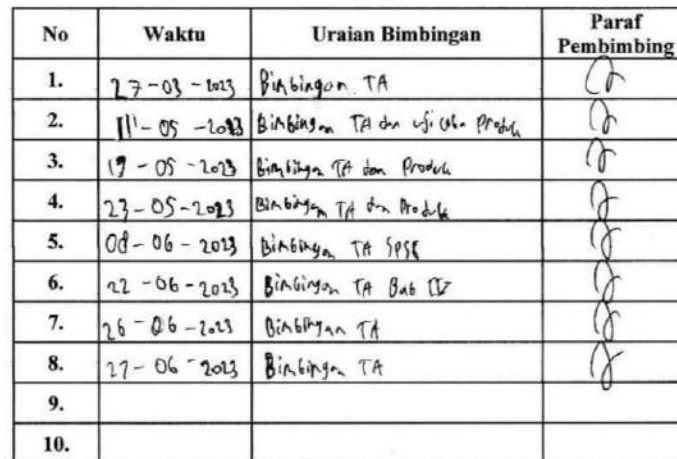 No Waktu Uraian Bimbingan Paraf Pembimbing
1. 27-03-2023 Bimbingan TA
2. 11-05-2023 Bimbingan TA dan uji coba Produk
3. 19-05-2023 Bimbingan TA dan Produk
4. 23-05-2023 Bimbingan TA dan Produk
5. 08-06-2023 Bimbingan TA
6. 22-06-2023 Bimbingan TA Bab IV
7. 26-06-2023 Bimbingan TA
8. 27-06-2023 Bimbingan TA
9.
10.